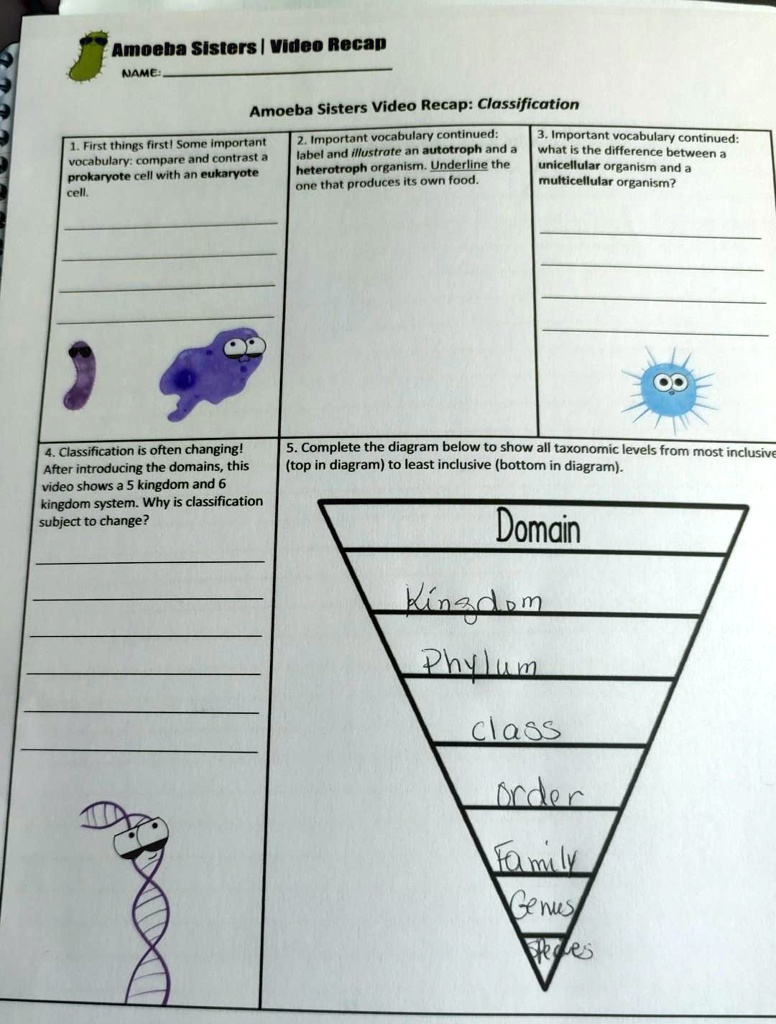 Amoeba Sisters | Video Recap
NAME:
Amoeba Sisters Video Recap: Classification
1. First things first! Some important
vocabulary: compare and contrast a
prokaryote cell with an eukaryote
cell.
2. Important vocabulary continued:
label and illustrate an autotroph and a
heterotroph organism. Underline the
one that produces its own food.
3. Important vocabulary continued:
what is the difference between a
unicellular organism and a
multicellular organism?
4. Classification is often changing!
After introducing the domains, this
video shows a 5 kingdom and 6
kingdom system. Why is classification
subject to change?
5. Complete the diagram below to show all taxonomic levels from most inclusive
(top in diagram) to least inclusive (bottom in diagram).
Domain
Kingdom
Phylum
class
order
Family
Genus
Species